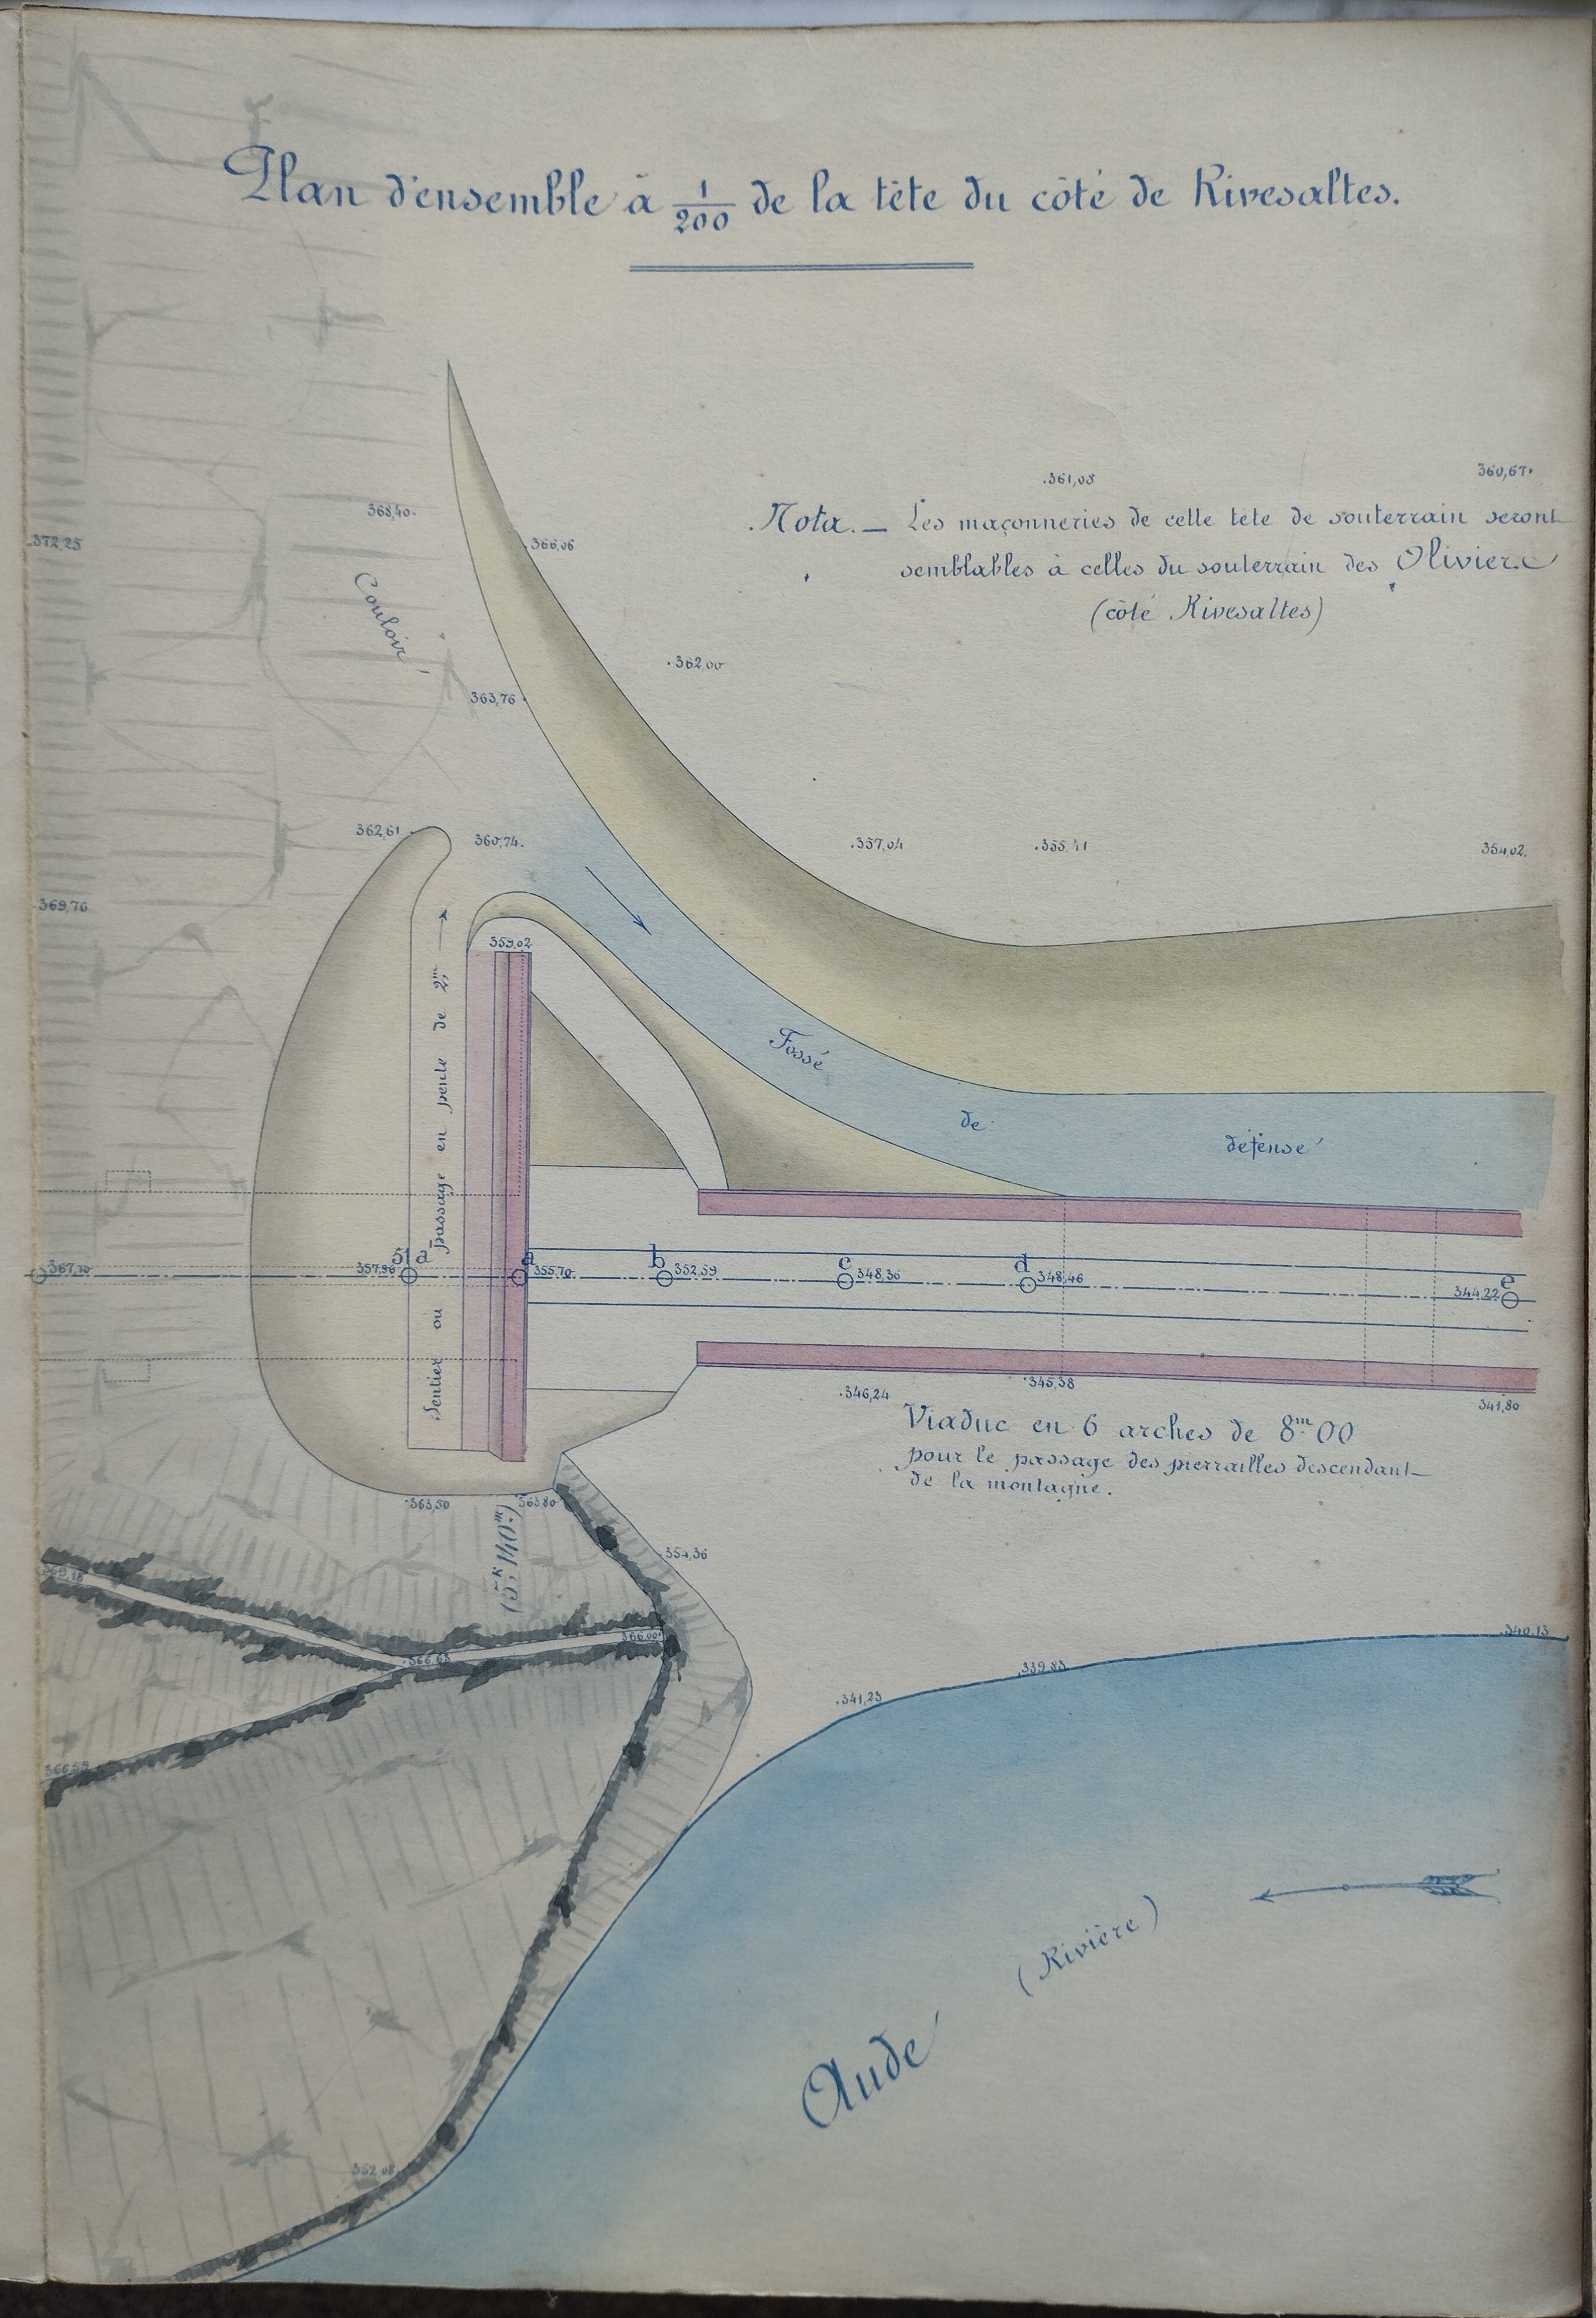 Plan d'ensemble à 1/200 de la tête du côté de Rivesaltes.
.361,08
360,67.
Nota. — Les maçonneries de cette tête de souterrain seront
semblables à celles du souterrain des Oliviers
(côté Rivesaltes)
368,40.
.372,25
.366,06
Couloir
.362,00
363,76.
362,61.
360,74.
.357,04
.355,41
354,02.
.369,76
359,02
Fossé
de
défense
Sentier ou passage en pente de 2m
367,10
51
a'
357,96
a
355,70
b
352,59
c
348,36
d
348,46
e
344,22
.345,38
.346,24
341,80
Viaduc en 6 arches de 8m 00
pour le passage des pierrailles descendant
de la montagne.
.363,50
.363,80
(5K,140m)
.354,36
369,18
366,00
.366,63
340,13
339,83
.341,23
(Rivière)
Aude